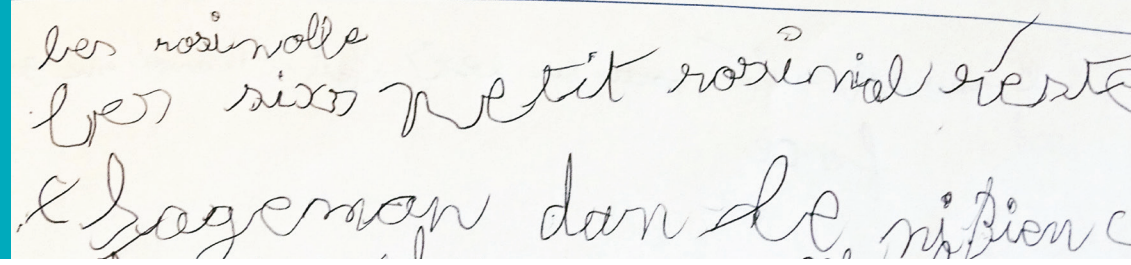 les rosinolle
les sixs petit rosiniol reste
sageman dan le ni bien